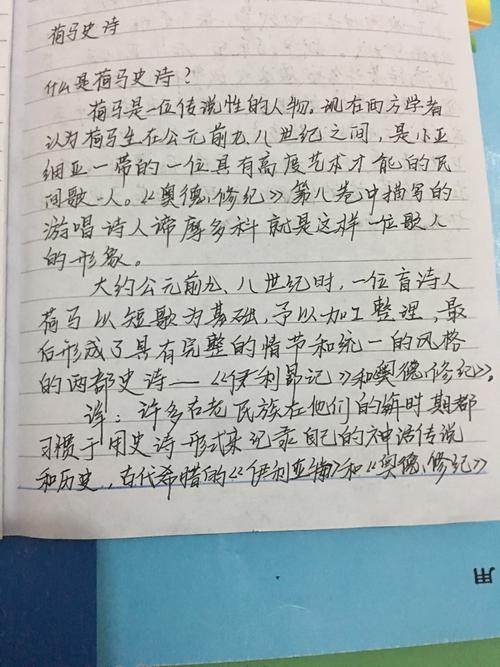 荷马史诗
什么是荷马史诗？
荷马是一位传说性的人物。现在西方学者
认为荷马生在公元前九、八世纪之间，是小亚
细亚一带的一位具有高度艺术才能的民
间歌人。《奥德修纪》第八卷中描写的
游唱诗人谛摩多科就是这样一位歌人
的形象。
大约公元前九、八世纪时，一位盲诗人
荷马以短歌为基础，予以加工整理，最
后形成了具有完整的情节和统一的风格
的两部史诗——《伊利昂记》和《奥德修纪》。
注：许多古老民族在他们的时期都
习惯于用史诗形式来记录自己的神话传说
和历史，古代希腊的《伊利亚特》和《奥德修纪》
用